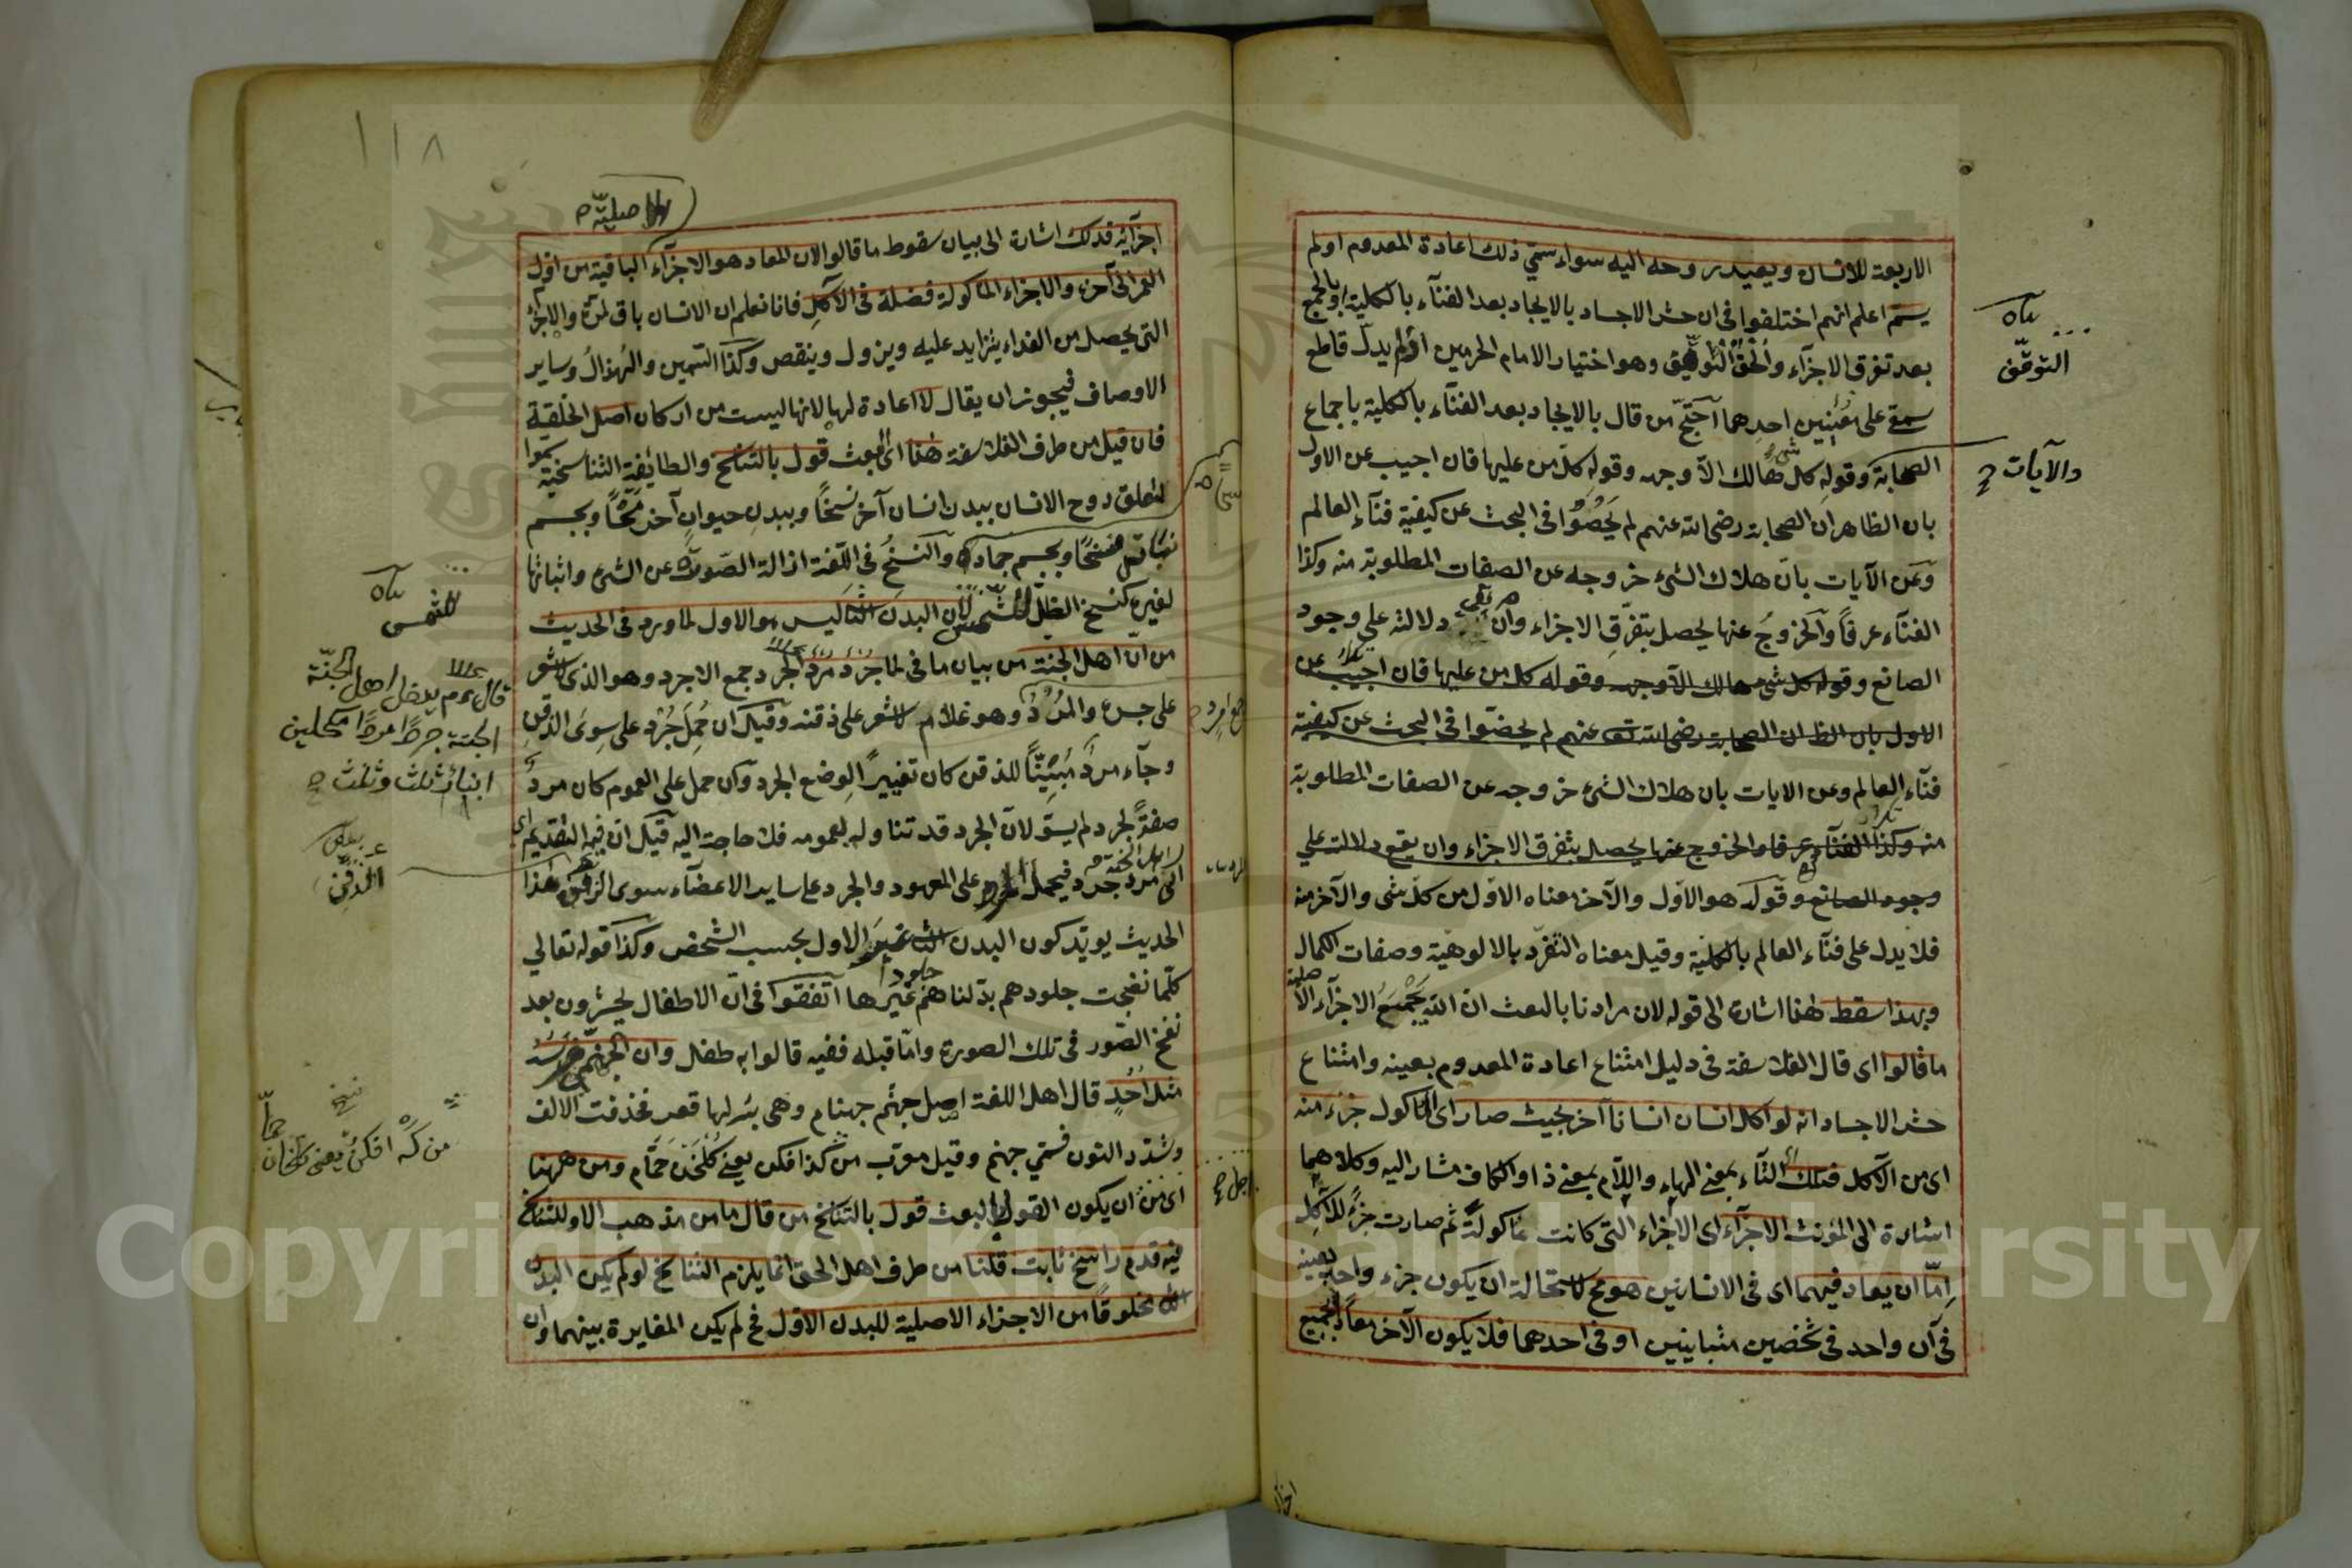 الاربعة للانسان ويعيد روحه اليه سواء سمّي ذلك اعادة المعدوم او لم
يسمّ اعلم انهم اختلفوا فى ان حشر الاجساد بالايجاد بعد الفنآء بالكلية او بالجمع
بعد تفرق الاجزآء والحق التوقف وهو اختيار الامام الحرمين اذ لم يدلّ قاطع
سمعىّ على تعيين احدهما آحتجّ من قال بالايجاد بعد الفنآء بالكلية باجماع
الصحابة وقوله كل شئ هالك الاّ وجهه وقوله كلّ من عليها فان اجيب عن الاول
بان الظاهر ان الصحابة رضى الله عنهم لم يخوضوا فى البحث عن كيفية فنآء العالم
وعن الآيات بانّ هلاك الشئ خروجه عن الصفات المطلوبة منه وكذا
الفنآء عرفاً والخروج عنها يحصل بتفرّق الاجزاء وان بقى دلالته على وجود
الصانع وقوله كل شئ هالك الآ وجهه وقوله كل من عليها فان اجيب عن
الاول بان الظ ان الصحابة رضى الله تعه عنهم لم يخضوا فى البحث عن كيفية
فنآء العالم وعن الايات بان هلاك الشئ خروجه عن الصفات المطلوبة
منه وكذا الفنآء عرفا والخروج عنها يحصل بتفرق الاجزاء وان يقع دلالته على
وجود الصانع وقوله هو الاوّل والآخر معناه الاوّل من كلّ شى والآخر منه
فلا يدل على فنآء العالم بالكلية وقيل معناه التفرّد بالالوهيّة وصفات الكمال
وبهذا سقط هذا اشارة الى قوله لان مرادنا بالبعث انّ الله يجمع الاجزآء الاصلية
ما قالوا اى قال الفلاسفة فى دليل امتناع اعادة المعدوم بعينه وامتناع
حشر الاجساد انه لو اكل انسان انسانا آخر بحيث صار اى المأكول جزء منه
اى من الآكل فتلك التآء بمعنى الهاء واللآم بمعنى ذا والكاف مشار اليه وكلاهما
اشارة الى المؤنث الاجزآء اى الاجزاء التى كانت مأكولة ثم صارت جزءً للآكل
اِمّا ان يعاد فيهما اى فى الانسانين هو مح لاستحالة ان يكون جزء واحد بعينه
فى آن واحد فى شخصين متباينين او فى احدهما فلا يكون الآخر معاداً بجميع
التوقّف
والآيات
١١٨
الاصليّة
اجزآئه فذلك اشارة الى بيان سقوط ما قالوا لان المعاد هو الاجزآء الباقية من اوّل
العمر الى آخره والاجزاء المأكولة فضلة فى الآكل فانا نعلم ان الانسان باق
التى يحصل من الغذاء يتزايد عليه ويزول وينقص وكذا السّمين والهُذالُ وساير
الاوصاف فيجوز ان يقال لا اعادة لها لانها ليست من اركان اصل الخلقة
فان قيل من طرف الفلاسفة هذا اى البعث قول بالتناسخ والطائفة التناسخية سمّوا
لتعلق روح الانسان ببدن انسان آخر نسخاً وببدن حيوان آخر مسخاً وبجسم
نباتى فسخًا وبجسم جمادى والنسخُ فى اللّغة ازالة الصّورة عن الشئ واثباتها
لغيره كنسخ الظلّ للشّمس لان البدن الثانى ليس هو الاول لما ورد فى الحديث
من انّ اهل الجنة من بيان ما فى لما جُرد مُرد الجُرد جمع الاجرد وهو الذى لا شعر
على جسده والمُردُ وهو غلام لا شعر على ذقنه وقيل ان حُمِلَ جُرد على سِوَى الذقن
وجآء مرد مبيّناً للذقن كان تغييراً لوضع الجرد وان حمل على العموم كان مرد
صفةً لجرد لم يستو لانّ الجرد قد تناوله بعمومه فلا حاجة اليه قيل انّ فيه التقديم اى
الى مرد جرد فيحمل المرد على المعهود والجرد على ساير الاعضآء سوى الذقن هذا
الحديث يويّد كون البدن الثانى غير الاول بحسب الشّخص وكذا قوله تعالى
كلّما نضجت جلودهم بدّلناهم جلوداً غيرها اتفقوا فى انّ الاطفال يحشرون بعد
نفخ الصّور فى تلك الصورة وامّا قبله ففيه قالوا به طفل وان الجهنّمى ضرسه
مثل اُحُدٍ قال اهل اللغة اصل جهنّم جهنام وهى بئر لها قعر فحذفت الالف
وشدّد النون فسمّي جهنم وقيل معرّب من كذا فكن يعنى كُلْخَن حمّام ومن ههنا
اى من ان يكون القول بالبعث قول بالتناسخ من قال ما من مذهب الا وللتناسخ
فيه قدم راسخ ثابت قلنا من طرف اهل الحق انما يلزم التناسخ لو لم يكن البدن
مخلوقاً من الاجزاء الاصلية للبدن الاوّل فح لم يكن المغايرة بينهما وان
للشّمس
قال عم م يدخل اهل الجنّة
الجنة جردًا مردًا مكحلين
ابناء ثلث وثلث
الذقن
من كَه افكن يعنى كلخان